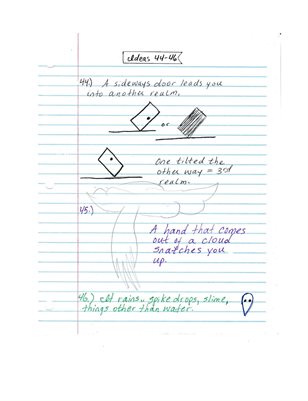 Ideas 44-46
44.) A sideways door leads you
into another realm.
or
One tilted the
other way = 3rd
realm.
45.)
A hand that comes
out of a cloud
snatches you
up.
46.) It rains.. spike drops, slime,
things other than water.